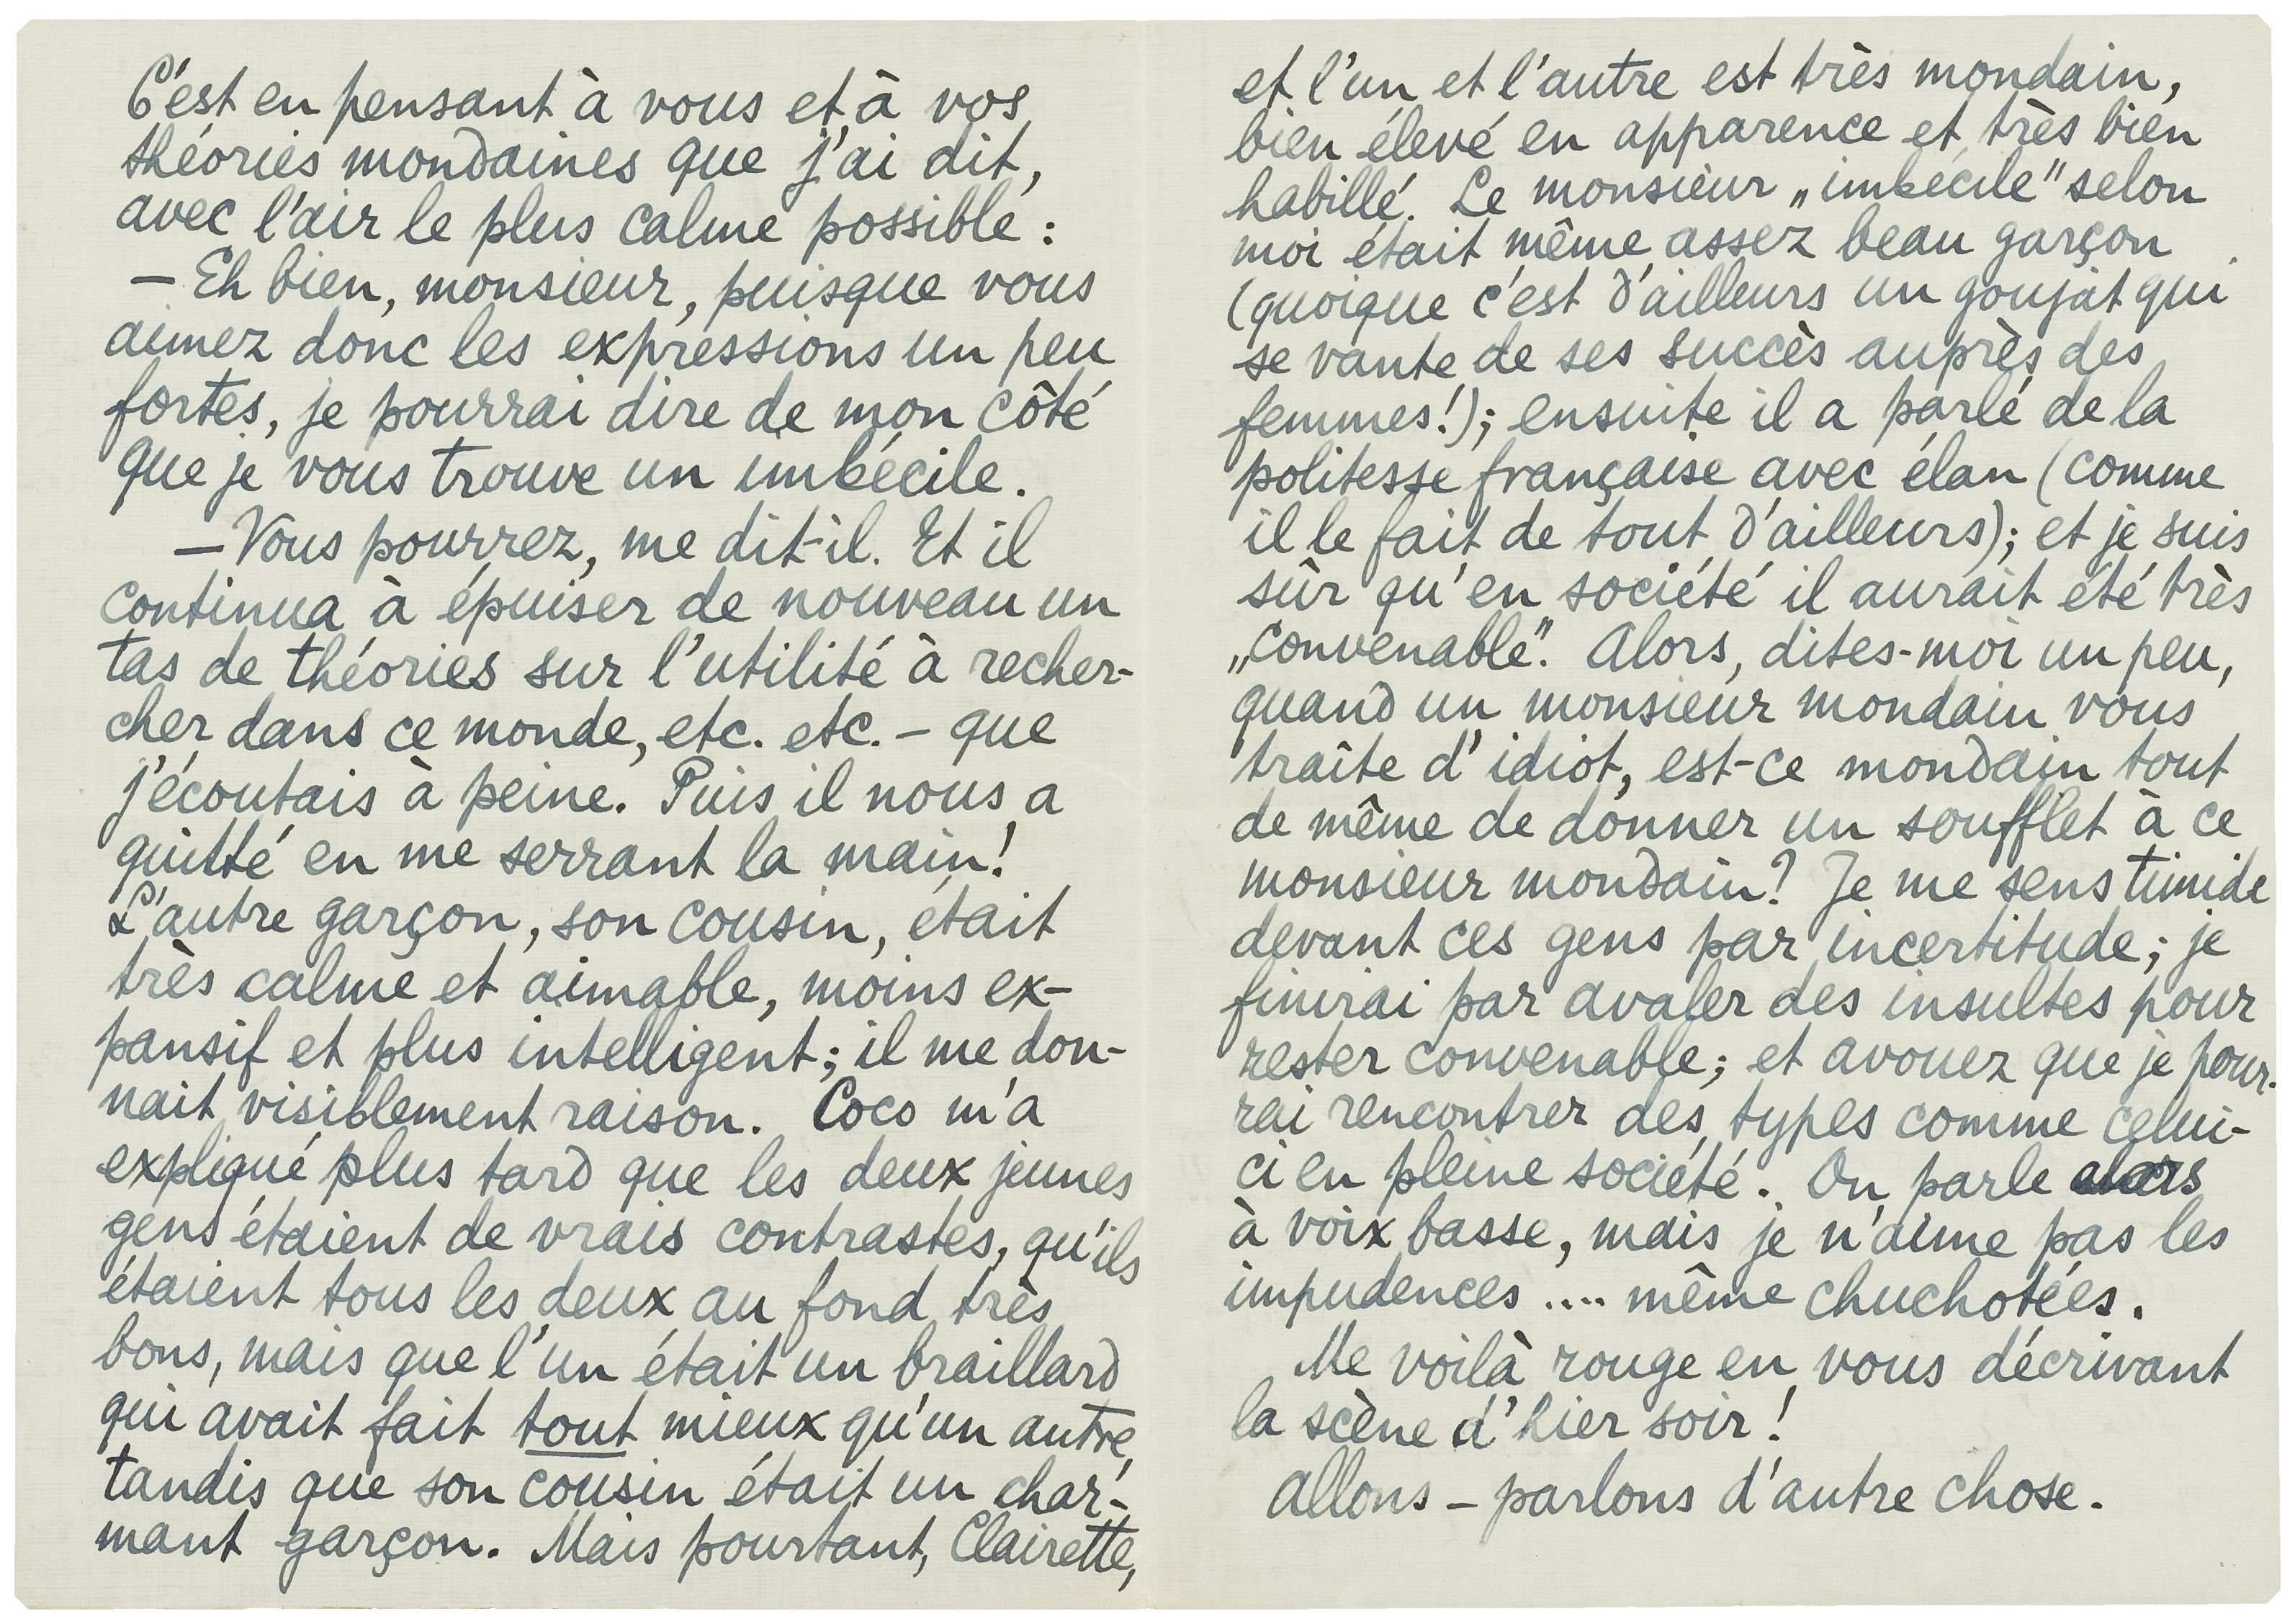 C'est en pensant à vous et à vos
théories mondaines que j'ai dit,
avec l'air le plus calme possible :
— Eh bien, monsieur, puisque vous
aimez donc les expressions un peu
fortes, je pourrai dire de mon côté
que je vous trouve un imbécile.
— Vous pourrez, me dit-il. Et il
continua à épuiser de nouveau un
tas de théories sur l'utilité à recher-
cher dans ce monde, etc. etc. – que
j'écoutais à peine. Puis il nous a
quitté en me serrant la main!
L'autre garçon, son cousin, était
très calme et aimable, moins ex-
pansif et plus intelligent; il me don-
nait visiblement raison. Coco m'a
expliqué plus tard que les deux jeunes
gens étaient de vrais contrastes, qu'ils
étaient tous les deux au fond très
bons, mais que l'un était un braillard
qui avait fait tout mieux qu'un autre,
tandis que son cousin était un char-
mant garçon. Mais pourtant, Clairette,
et l'un et l'autre est très mondain,
bien élevé en apparence et très bien
habillé. Le monsieur „imbécile" selon
moi était même assez beau garçon
(quoique c'est d'ailleurs un goujat qui
se vante de ses succès auprès des
femmes!); ensuite il a parlé de la
politesse française avec élan (comme
il le fait de tout d'ailleurs); et je suis
sûr qu'en société il aurait été très
„convenable". Alors, dites-moi un peu,
quand un monsieur mondain vous
traîte d'idiot, est-ce mondain tout
de même de donner un soufflet à ce
monsieur mondain? Je me sens timide
devant ces gens par incertitude; je
finirai par avaler des insultes pour
rester convenable; et avouez que je pour-
rai rencontrer des types comme celui-
ci en pleine société. On parle alors
à voix basse, mais je n'aime pas les
impudences .... même chuchotées.
Me voilà rouge en vous décrivant
la scène d'hier soir!
Allons – parlons d'autre chose.